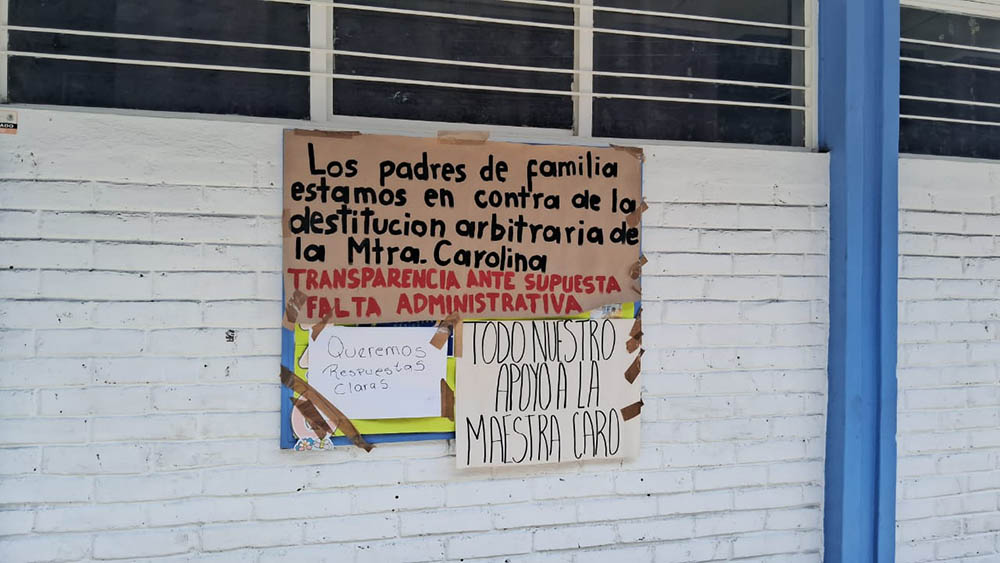 Los padres de familia
estamos en contra de la
destitucion arbitraria de
la Mtra. Carolina
TRANSPARENCIA ANTE SUPUESTA
FALTA ADMINISTRATIVA
Queremos
Respuestas
Claras
TODO NUESTRO
APOYO A LA
MAESTRA CARO